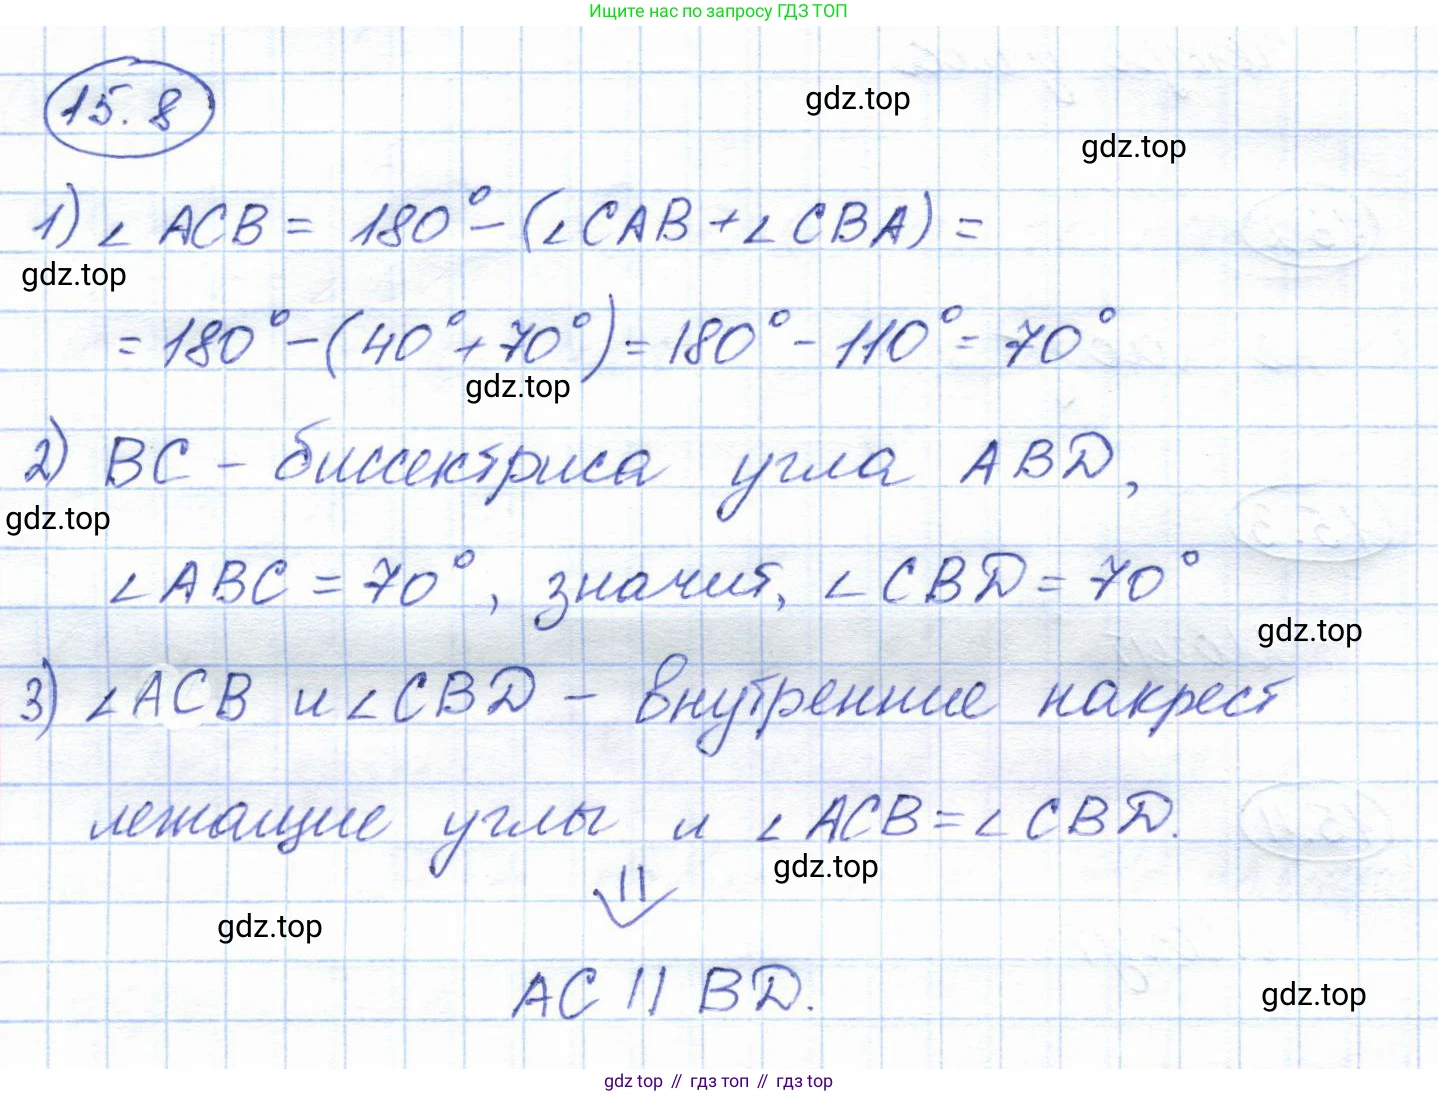 Ищите нас по запросу ГДЗ ТОП
15.8
gdz.top
gdz.top
1) ∠ ACB = 180° − (∠CAB + ∠CBA) =
gdz.top
= 180° − (40° + 70°) = 180° − 110° = 70°
gdz.top
2) BC − биссектриса угла ABD,
gdz.top
∠ABC = 70°, значит, ∠CBD = 70°
gdz.top
3) ∠ACB и ∠CBD − внутренние накрест
лежащие углы и ∠ACB = ∠CBD.
gdz.top
⇓
gdz.top
AC || BD.
gdz.top
gdz top // гдз топ // гдз top